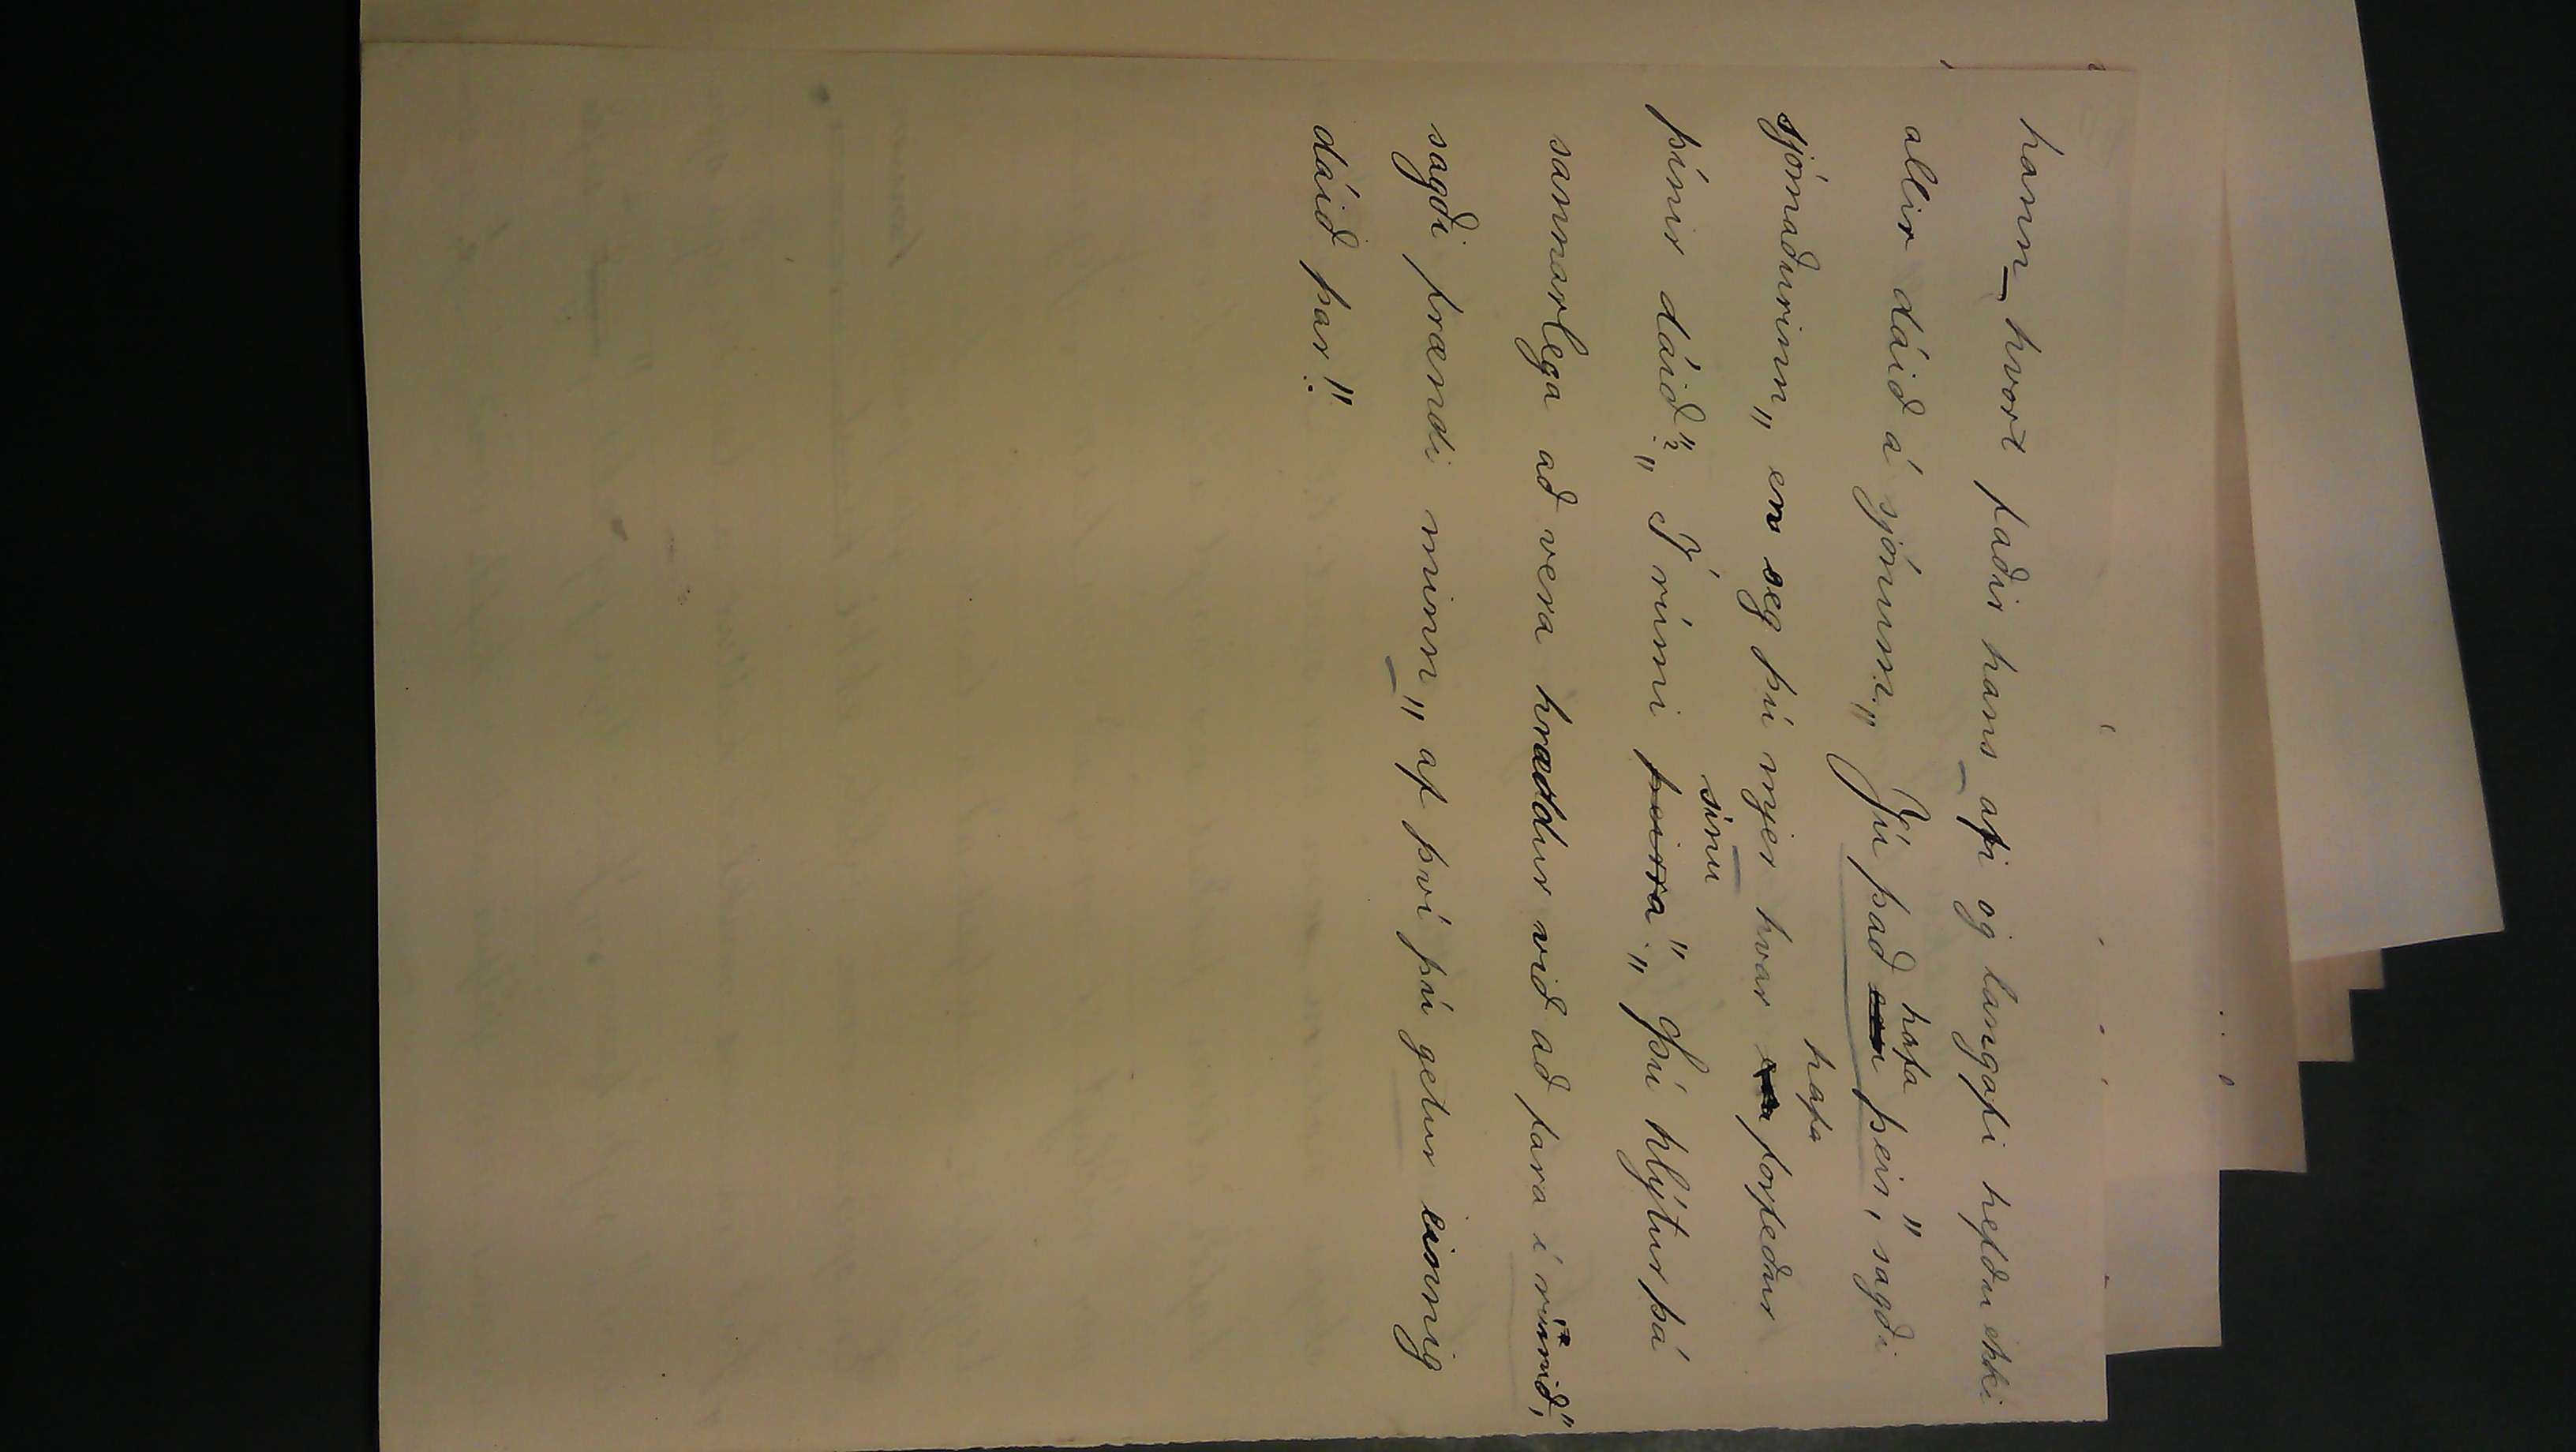 hann hvort faðir hans afi og langafi hefðu ekki
allir dáið á sjónum. „Jú það hafa þeir“, sagði
sjómaðurinn, „en seg þú mjer hvar hafa forfeður
þínir dáið?“ „Í rúmi þeirra sínu.“ „Þú hlýtur þá
sannarlega að vera hræddur við að fara í rúmið“,
sagði frændi minn, „af því þú getur einnig
dáið þar!“